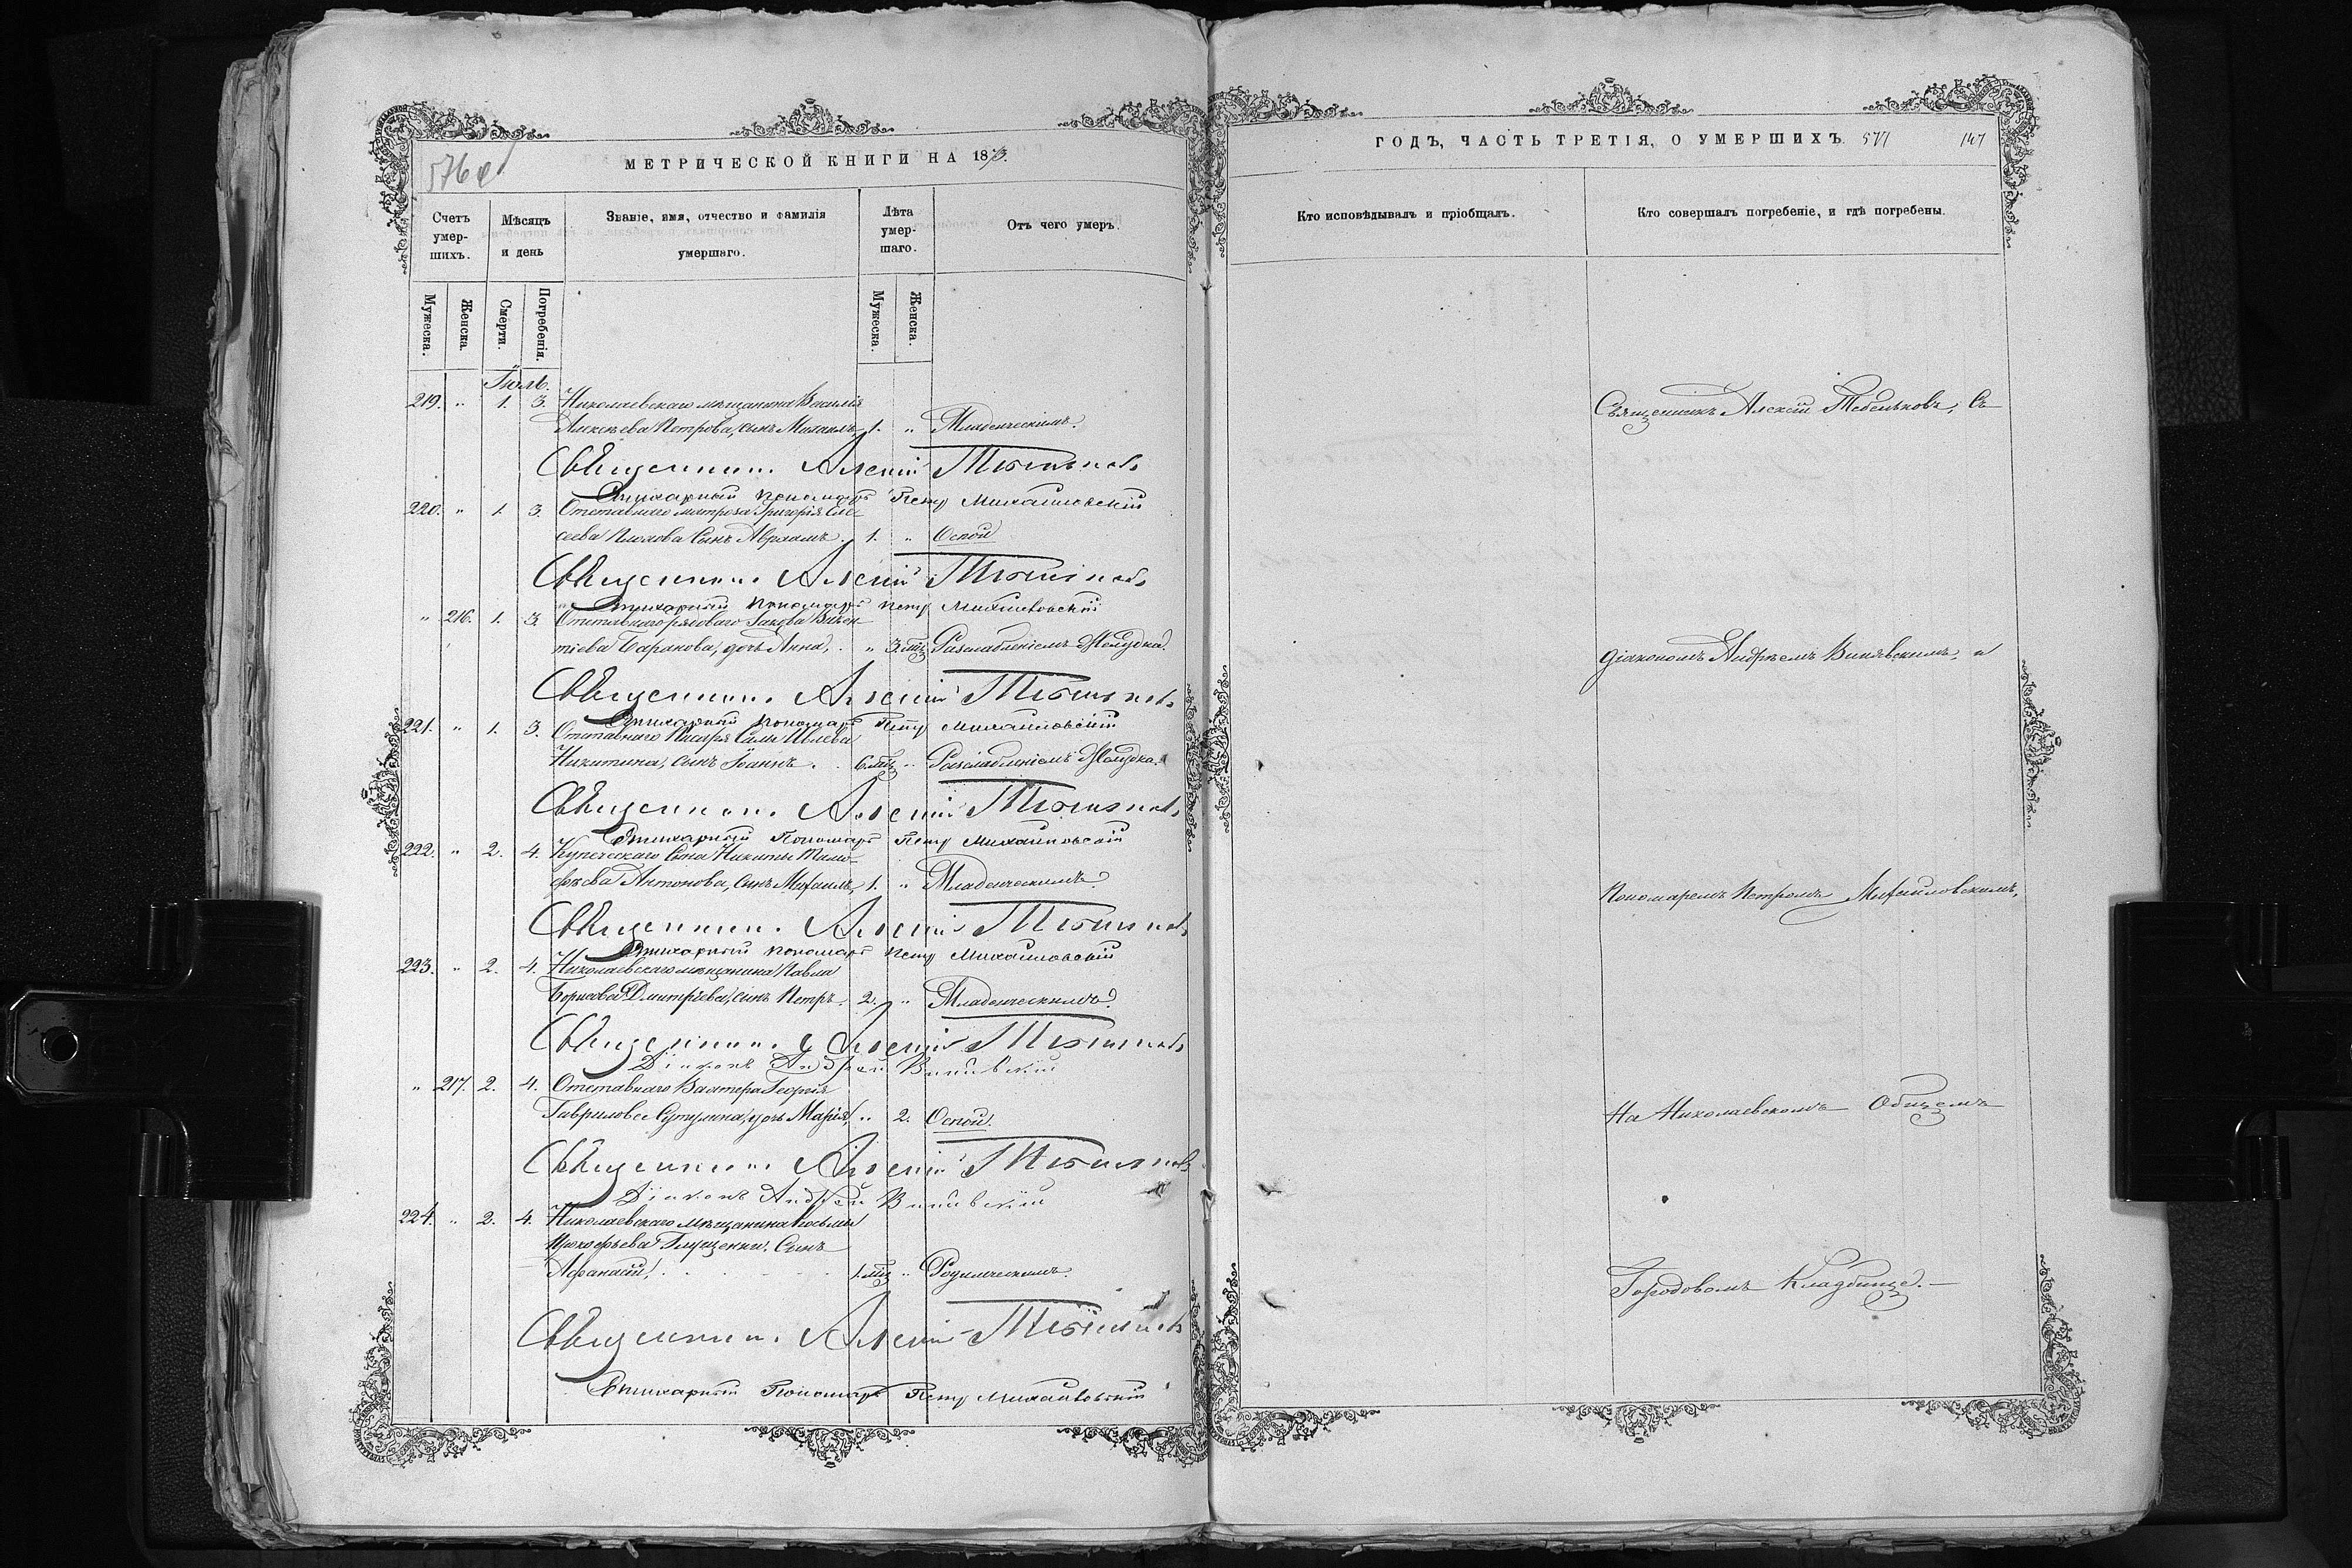 576
МЕТРИЧЕСКОЙ КНИГИ НА 1873.
Счетъ умер-шихъ.
Мѣсяцъ и день
Званіе, имя, отчество и фамилія умершаго.
Лѣта умер-шаго.
Отъ чего умеръ.
Мужеска.
Женска.
Смерти.
Погребенія.
Мужеска.
Женска.
Іюль.
219. " 1. 3. Николаевскаго мѣщанина Василія
Алексѣева Петрова, сынъ Михаилъ, 1. " Младенческимъ.
Священникъ Алексій
Стихарный пономарь Петръ Михайловскій
220. " 1. 3. Отставнаго матроса Григорія Елі-
сеева Клюхова сынъ Авраамъ. 1. " Оспой
Священникъ Алексій
Стихарный пономарь Петръ Михайловскій
" 216. 1. 3. Отставнаго рядоваго Іакова Викен
тіева Баранова, дочь Анна, . " 3. мѣц Разслабленіемъ Желудка.
Священникъ Алексій
Стихарный пономарь Петръ Михайловскій
221. " 1. 3. Отставнаго Писаря
Никитина, сынъ Іоаннъ. . 6. мѣц " Разслабленіемъ Желудка.
Священникъ Алексій
Стихарный Пономарь Петръ Михайловскій
222. " 2. 4. Купеческаго сына Никиты Тимо-
фѣева Антонова, сынъ Михаилъ, 1. " Младенческимъ.
Священникъ Алексій
Стихарный пономарь Петръ Михайловскій
223. " 2. 4. Николаевскаго мѣщанина Павла
Борисова Дмитріева, сынъ Петръ. 2. " Младенческимъ.
Священникъ Алексій
Діаконъ Андрей
" 217. 2. 4. Отставнаго Вахтера Георгія
Гаврилова дочь Марія, " 2. Оспой.
Священникъ Алексій
Діаконъ Андрей
224. " 2. 4. Николаевскаго мѣщанина Косьмы
Прокофьева Глущенки. Сынъ
Афанасій, . . . 1. мѣц " Родимческимъ.
Священникъ Алексій
Стихарный Пономарь Петръ Михайловскій
ГОДЪ, ЧАСТЬ ТРЕТІЯ, О УМЕРШИХЪ. 577 147
Кто исповѣдывалъ и пріобщалъ.
Кто совершалъ погребеніе, и гдѣ погребены.
Священникъ Алексій Тебеньковъ, Съ
діакономъ Андреемъ и
Пономаремъ Петромъ Михайловскимъ,
На Николаевскомъ Общемъ
Городовомъ Кладбищѣ. —